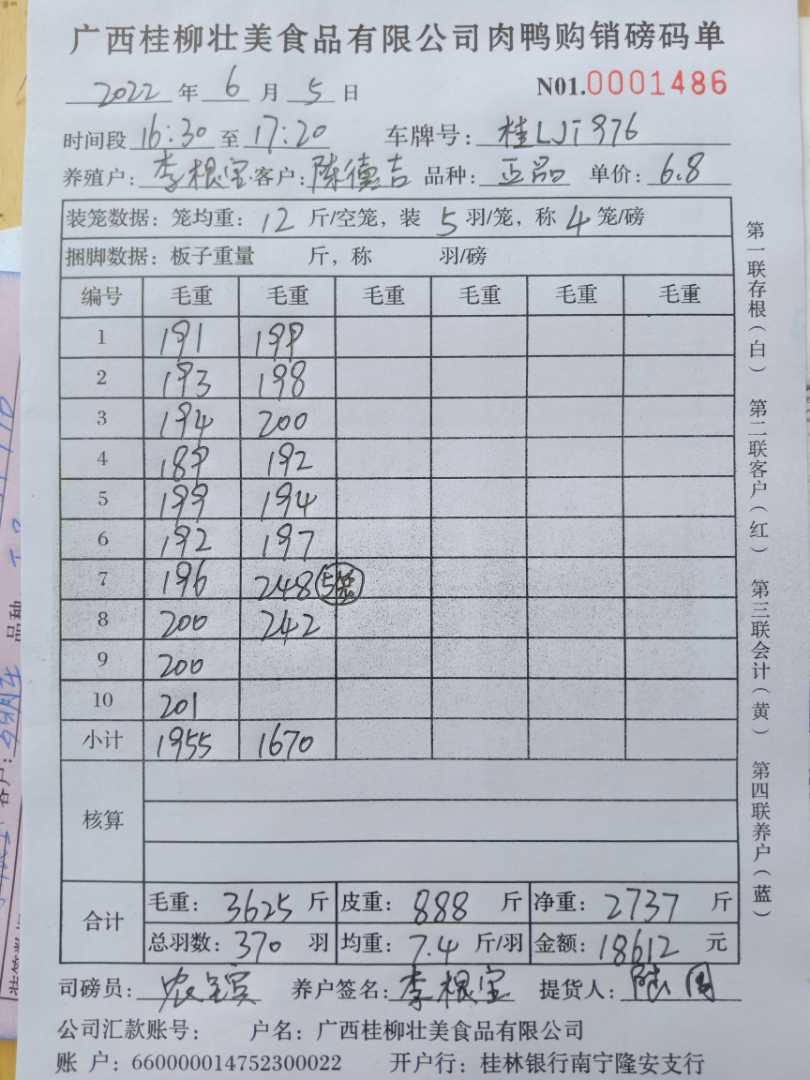 广西桂柳壮美食品有限公司肉鸭购销磅码单
2022 年 6 月 5 日 N01.0001486
时间段 16:30 至 17:20 车牌号: 桂LJT976
养殖户: 李根宝 客户: 陈德吉 品种: 正品 单价: 6.8
装笼数据: 笼均重: 12 斤/空笼, 装 5 羽/笼, 称 4 笼/磅
捆脚数据: 板子重量 斤, 称 羽/磅
编号 毛重 毛重 毛重 毛重 毛重 毛重
1 191 199
2 193 198
3 194 200
4 189 192
5 199 194
6 192 197
7 196 248 5笼
8 200 242
9 200
10 201
小计 1955 1670
核算
合计 毛重: 3625 斤 皮重: 888 斤 净重: 2737 斤
总羽数: 370 羽 均重: 7.4 斤/羽 金额: 18612 元
司磅员: 养户签名: 李根宝 提货人:
公司汇款账号: 户名: 广西桂柳壮美食品有限公司
账 户: 660000014752300022 开户行: 桂林银行南宁隆安支行
第一联存根(白) 第二联客户(红) 第三联会计(黄) 第四联养户(蓝)
品种